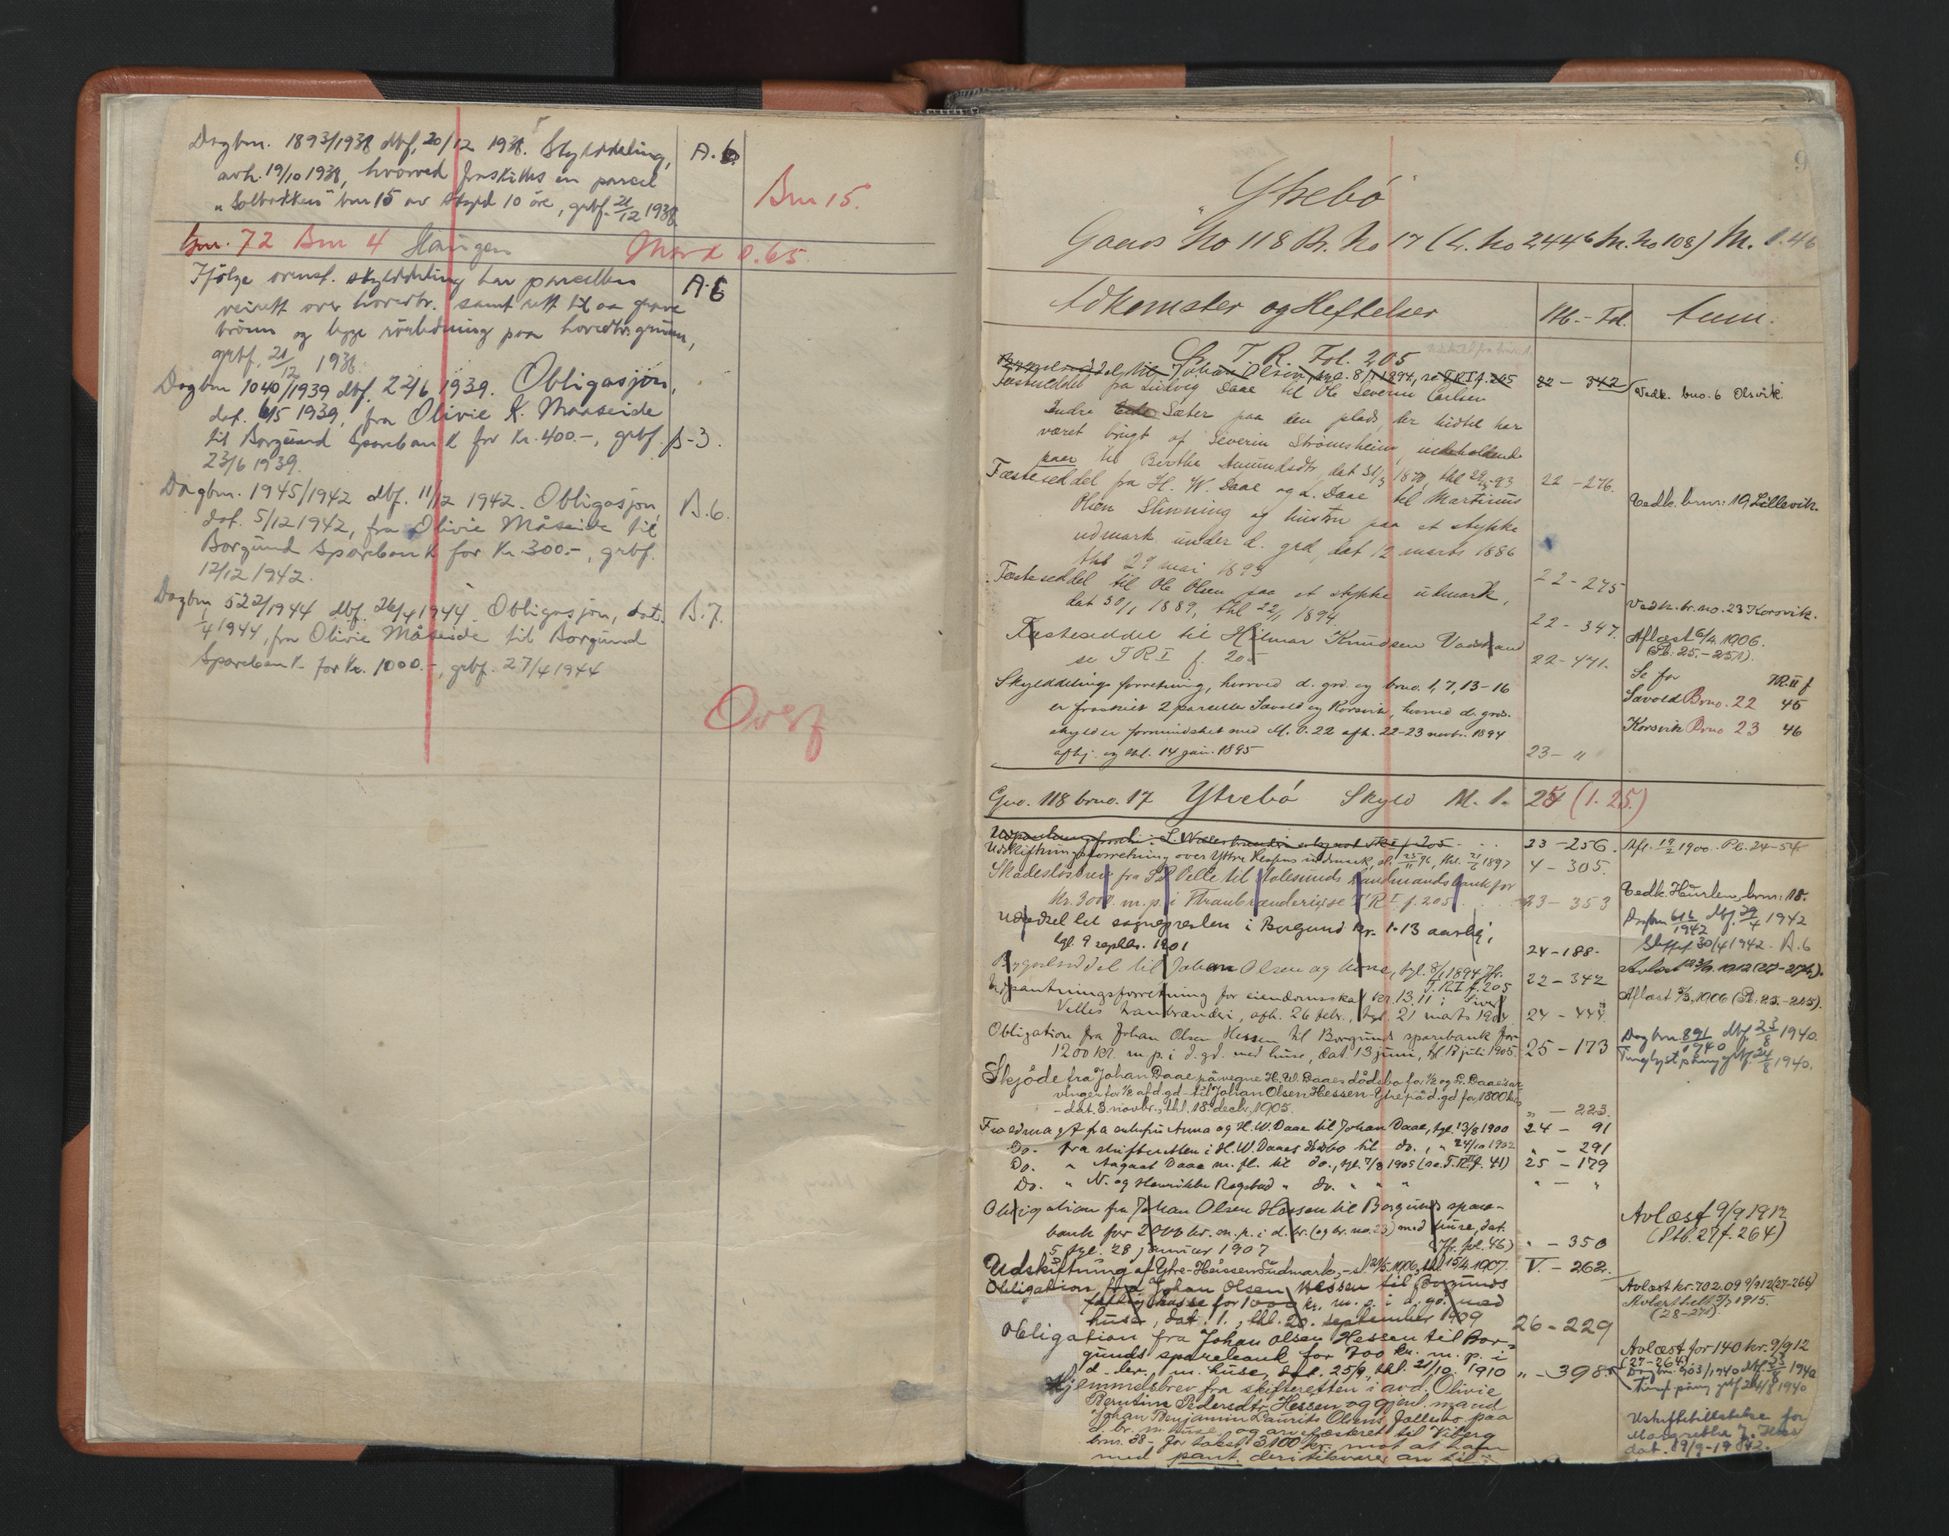 Dagbnr. 1893/1938 dbf. 20/12 1938. Skylddeling, A.6.
avh. 19/10 1938, hvorved fraskilles en parcel
"Solbakken" bnr 15 av skyld 10 öre, grbf. 21/12 1938 Bnr 15.
Gnr. 72 Bnr 4 Haugen Mark 0.65
Ifölge ovenst. skylddeling har parcellen A.6
veirett over hovedbr. samt rett til aa grave
brönn og legge rörledning paa hovedbr. grunn,
grbf. 21/12 1938.
Dagbnr 1040/1939 dbf. 22/6 1939. Obligasjon,
dat. 6/5 1939, fra Olivie K. Maaseide
til Borgund Sparebank for kr. 400.-, grbf. B-3.
23/6 1939.
Dagbnr. 1945/1942 dbf. 11/12 1942. Obligasjon, B.6.
dat. 5/12 1942, fra Olivie Måseide til
Borgund Sparebank for kr. 300.-, grbf.
12/12 1942.
Dagbnr. 522/1944 dbf. 26/4 1944. Obligasjon, dat. B.7.
/4 1944, fra Olivie Måseide til Borgund
Sparebank for kr. 1000.-, grbf. 27/4 1944
Overf
9
"Ytrebö"
Gaards No 118 Br. No 17 (L. No 2446 M. No 108) M. 1.46
Adkomster og Heftelser M.- Fd. Anm.
Se T. R. Fol. 205
Bygselseddel til Johan Olsen, tgl. 8/1 1894, se T R I f. 205 22 - 342
Fæsteseddel fra Ludvig Daae til Ole Severin Carlsen Vedk. bno. 6 Olsvik
Indre Sæter paa den plads, der hidtil har
været brugt af Severin Strömsheim, indeholdende
til Berthe Amundsdtr, dat 31/3 1870, thl 29/5-93 22 - 276.
Fæsteseddel fra H. W. Daae og L. Daae til Martinus Vedk. brnr. 19 Lillevik.
Olsen Stinning og hustru paa et stykke
udmark under d. grd, dat 12 marts 1886
thl 29 mai 1893 22 - 275
Fæsteseddel til Ole Olsen paa et stykke udmark, Vedk. br. no. 23 Korsvik.
dat 30/1 1889, thl 22/1 1894. 22 - 347.
Fæsteseddel til Hilmar Knudsen Vadstrand Aflæst 6/4 1906.
se T R I f. 205 22 - 471. (Pb. 25 - 251).
Skylddelings forretning, hvorved d. grd og brno. 1, 7, 13-16 Se for TR. II f
er fraskilt 2 parceller Savold og Korsvik, hvorved d. grds. Savold Brno. 22 45
skyld er formindsket med M. 0.22 afh. 22-23 novbr. 1894 Korsvik Brno 23 46
afhj. og thl. 14 jan. 1895 23 - "
Gno. 118 brno. 17 Ytrebö Skyld M. 1. 24 (1.25)
23 - 256. Afl. 19/2 1900. Pb. 24-54
Udskiftningsforretning over Ytre Hessens udmark, 25/11 96, thl. 21/6 1897 4 - 305.
Skadeslösbrev fra S. Velle til Aalesunds Landmandsbank for Vedk. Hurlen, brnr. 18.
kr. 3000. m. p. i Tranbrænderi, se T R I f. 205 23 - 353 Dagbnr 616/1942 dbf 29/4 1942
Udedsel til sognepresten i Borgund kr. 1.13 aarlig, Slettet 30/4 1942. A.6
tgl. 9 septbr. 1901 24 - 188.
Bygselseddel til Johan Olsen og kone, tgl. 8/1 1894 Jfr. T.R.I f. 205 22 - 342
Udpantningsforretning for eiendomsskat kr. 13.11 i Siver Aflæst 2/3 1906 (Pb. 25 - 215).
Velles tranbrænderi, afh. 26 febr., tgl. 21 marts 1904. 24 - 444
Obligation fra Johan Olsen Hessen til Borgunds sparebank for Dagbnr 891/1940 dbf 23/8 1940.
1200 kr. m. p. i d. gd. med huse, dat 13 juni, tgl 17 juli 1905. 25 - 173 Tinglyst påny grbf 24/8 1940.
Skjöde fra Johan Daae på vegne H. W. Daaes dödsbo for 1/2 og L. Daaes ar-
vinger for 1/2 af d. gd - til Johan Olsen Hessen - Ytre på d. gd for 1800 kr.
- dat. 3. novbr., thl. 18. decbr, 1905. " - 223.
Fuldmagt fra enkefru Anna og H. W. Daae til Johan Daae, tgl. 13/8 1900 24 - 91
Do. fra skifteretten i H. W. Daaes dödsbo til do., " 24/10 1902 " - 291
Do. " Aagaat Daae m. fl. til do., tgl. 7/8 1905 (se T.R.II f. 41) 25 - 179
Do. " N. og Henrikke Rogstad " do. " " " " - "
Obligation fra Johan Olsen Hessen til Borgunds spare- Avlæst 9/9 1912
bank for 2000 kr. m. p. i d. br. (og br. no. 23) med huse, dat. (Ptb. 27 f. 264)
5, tgl. 28 januar 1907 (Jfr. fol. 46) " - 350
Udskiftning af Ytre-Hessens udmark, - sl. 21/5 1906, thl 15/4 1907. V. - 262.
Obligation fra Johan Olsen Hessen til Borgunds Avlæst kr. 702.09 9/9 12 (27-266)
fattigkasse for 1000 kr. m. p. i d. gd. med 1915.
huse, dat. 1., thl. 20. september 1909 26 - 229
Obligation fra Johan Olsen Hessen til Bor- Avlæst for 140 kr. 9/9 12
gunds sparebank for 700 kr. m. p. i (27-264)
d. br. m. huse, dat. 25/9, thl. 21/10. 1910 " - 398. Dagbnr. 903/1940 dbf 23/8 1940
Hjemmelsbrev fra skifteretten i avd. Olivie Tingl påny grbf 24/8 1940
Berntine Pedersdtr Hessen og gjenl. mand
Johan Benjamin Laurits Olsens fællesbo paa Uskiftetillatelse for
d. br. m. huse, og arvefæsteret til Viberg Margrethe J. Hess
brnr. 38 - for takst 3100 kr. mot at han dat. 19/9-1942.
med pant deri tilsvarer an til-